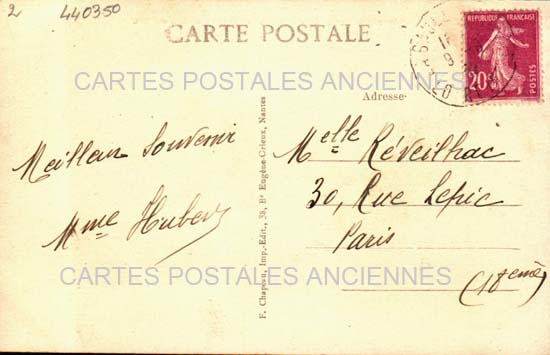 2 440350
CARTE POSTALE
REPUBLIQUE FRANÇAISE
20c
POSTES
CARTES POSTALES ANCIENNES
Adresse
Meilleur Souvenir
Mme Hubert
Melle Réveilhac
30, Rue Lepic
Paris
(18eme)
F. Chapeau, Imp.-Edit., 38, Bd Eugène-Orieux, Nantes
CARTES POSTALES ANCIENNES